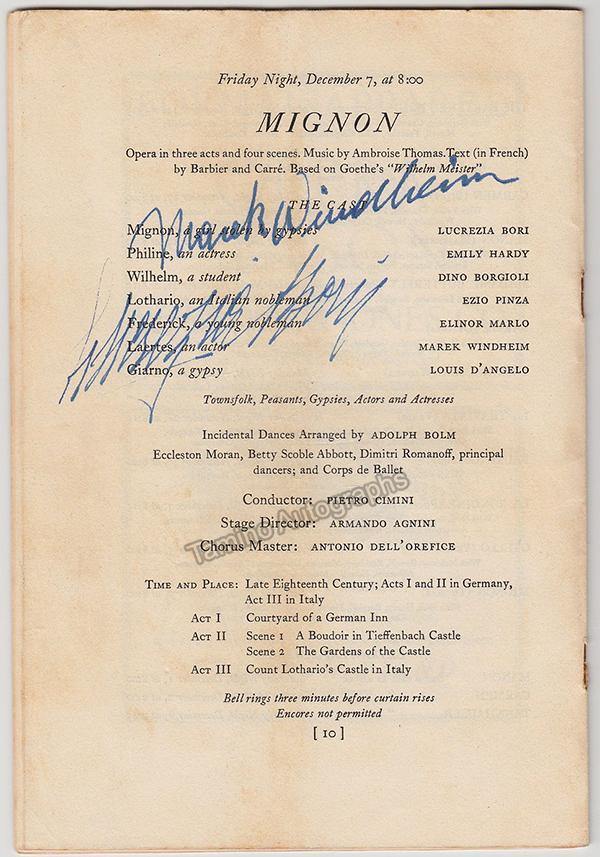 Friday Night, December 7, at 8:00
MIGNON
Opera in three acts and four scenes. Music by Ambroise Thomas. Text (in French)
by Barbier and Carré. Based on Goethe's "Wilhelm Meister"
THE CAST
Marek Windheim
Mignon, a girl stolen by gypsies LUCREZIA BORI
Philine, an actress EMILY HARDY
Wilhelm, a student DINO BORGIOLI
Lothario, an Italian nobleman EZIO PINZA
Lucrezia Bori
Frederick, a young nobleman ELINOR MARLO
Laertes, an actor MAREK WINDHEIM
Giarno, a gypsy LOUIS D'ANGELO
Townsfolk, Peasants, Gypsies, Actors and Actresses
Incidental Dances Arranged by ADOLPH BOLM
Eccleston Moran, Betty Scoble Abbott, Dimitri Romanoff, principal
dancers; and Corps de Ballet
Conductor: PIETRO CIMINI
Stage Director: ARMANDO AGNINI
Chorus Master: ANTONIO DELL'OREFICE
Tamino Autographs
TIME AND PLACE: Late Eighteenth Century; Acts I and II in Germany,
Act III in Italy
ACT I Courtyard of a German Inn
ACT II Scene 1 A Boudoir in Tieffenbach Castle
Scene 2 The Gardens of the Castle
ACT III Count Lothario's Castle in Italy
Bell rings three minutes before curtain rises
Encores not permitted
[ 10 ]